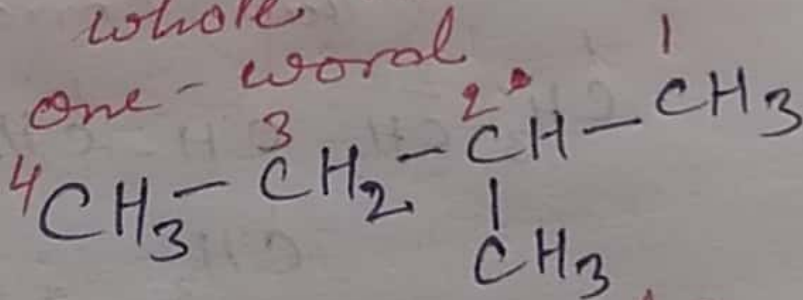 whole
one-word
4 3 2 1
CH3 - CH2 - CH - CH3
|
CH3